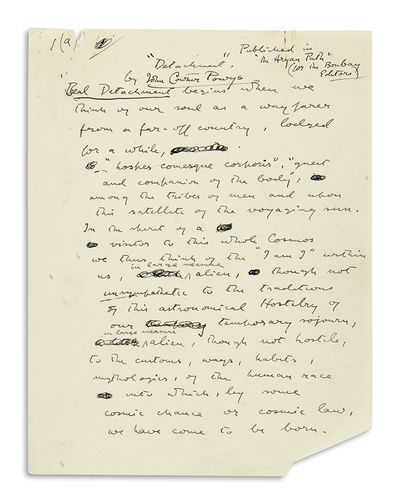 1(a)
Published in
"Detachment". "the Aryan Path"
(for the Bombay
by John Cowper Powys Editors)
Real Detachment begins when we
think of our soul as a wayfarer
from a far-off country, lodged
for a while,
"hospes comesque corporis", "guest
and companion of the body",
among the tribes of men and upon
this satellite of the voyaging sun.
In the spirit of a
visitor to this whole Cosmos
we thus think of the "I am I" within
in large measure
us, alien, though not
unsympathetic to the traditions
of this astronomical Hostelry of
our temporary sojourn,
in large measure
alien, though not hostile,
to the customs, ways, habits,
mythologies, of the human race
into which, by some
cosmic chance or cosmic law,
we have come to be born.